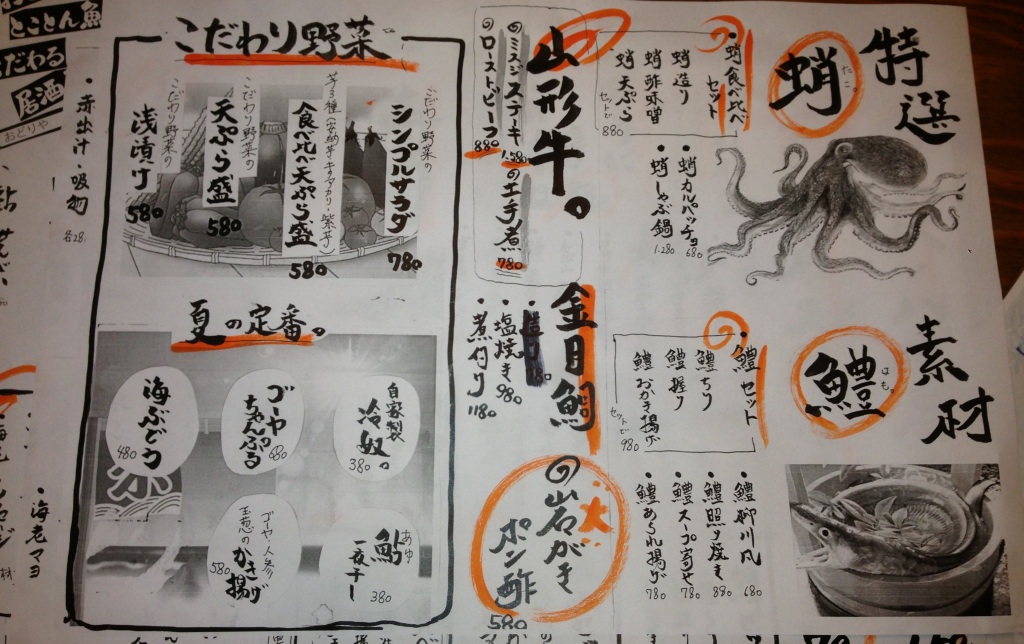 特選
素材
蛸
たこ。
蛸食べ比べ
セット
蛸造り
蛸酢味噌
蛸天ぷら
セットで
880
・蛸カルパッチョ
680
・蛸しゃぶ鍋
1.280
鱧
はも。
鱧セット
鱧ちり
鱧握り
鱧おかき揚げ
セットで
980
・鱧柳川風
680
・鱧照り焼き
880
・鱧スープ寄せ
780
・鱧あられ揚げ
780
山形牛。
ミスジステーキ
1.580
ローストビーフ
880
エ手煮
780
金目鯛
・塩焼き
980
・煮付け
1180
大
岩がき
ポン酢
580
こだわり野菜
こだわり野菜の
シンプルサラダ
780
食べ比べ天ぷら盛
580
こだわり野菜の
天ぷら盛
580
こだわり野菜の
浅漬け
580
夏の定番。
自家製
冷奴。
380
ゴーヤ
ちゃんぷる
680
海ぶどう
480
あゆ
鮎
一夜干し
380
ゴーヤ・人参
玉葱の
かき揚げ
580
とことん魚
だわる
居酒
おどりや
・赤出汁・吸物
・海老マヨ